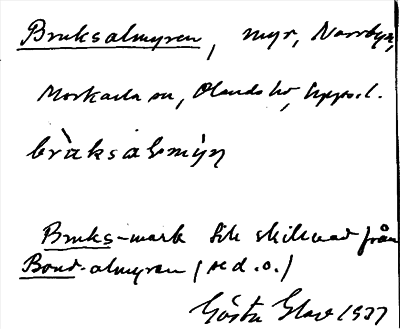 Bruksalmyren, myr, Norrbyn,
Morkarla sn, Olands hd, Upps. l.
Bruks-mark till skillnad från
Bond-almyren (se d. o.)
Gösta Glav 1937